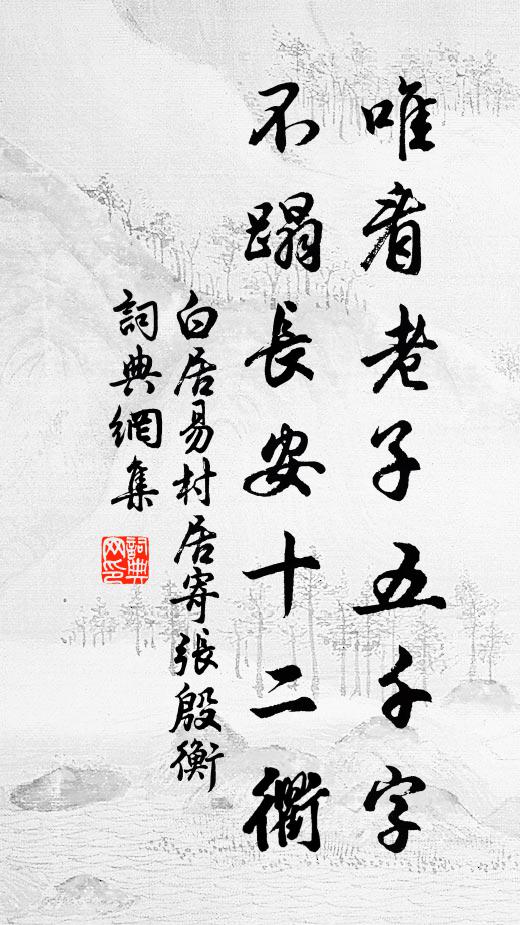 唯看老子五千字
不蹋長安十二衢
白居易村居寄張殷衡
詞典網集
詞典网印